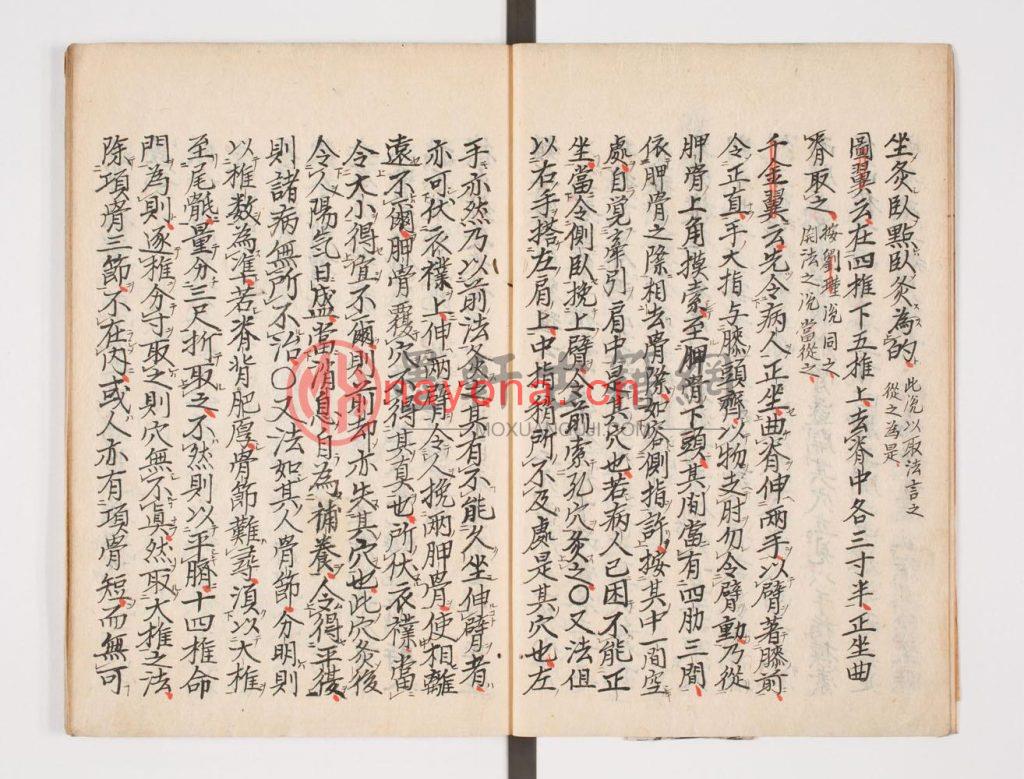 坐灸臥點臥灸為的 此説以取法言之
從之為是
圖翼云在四椎下五椎上去脊中各三寸半正坐曲
脊取之 按劉瑾説同之
開法之説當從之
千金翼云先令病人正坐曲脊伸兩手以臂著膝前
令正直手大指与膝頭齊以物支肘勿令臂動乃從
胛骨上角摸索至胛骨下頭其間當有四肋三間
依胛骨之際相去骨際如容側指許按其中一間空
處自覚牽引肩中是其穴也若病人已困不能正
坐當令側臥挽上臂令前索孔穴灸之〇又法但
以右手搭左肩上中指稍所不及處是其穴也左
手亦然乃以前法灸之其有不能久坐伸臂者
亦可伏衣襆上伸兩臂令人挽兩胛骨使相離
遠不爾胛骨覆穴不得其真也所伏衣襆當
令大小得宜不爾則前却亦失其穴也此穴灸後
令人陽气日盛當消息自為補養令得平復
則諸病無所不治〇又法如其人骨節分明則
以椎数為準若脊背肥厚骨節難尋須以大椎
至尾骶量分三尺折取之不然則以平臍十四椎命
門為則逐椎分寸取之則穴無不真然取大椎之法
除項骨三節不在内或人亦有項骨短而無可
nayona.cn
MOXUANGUJI.COM